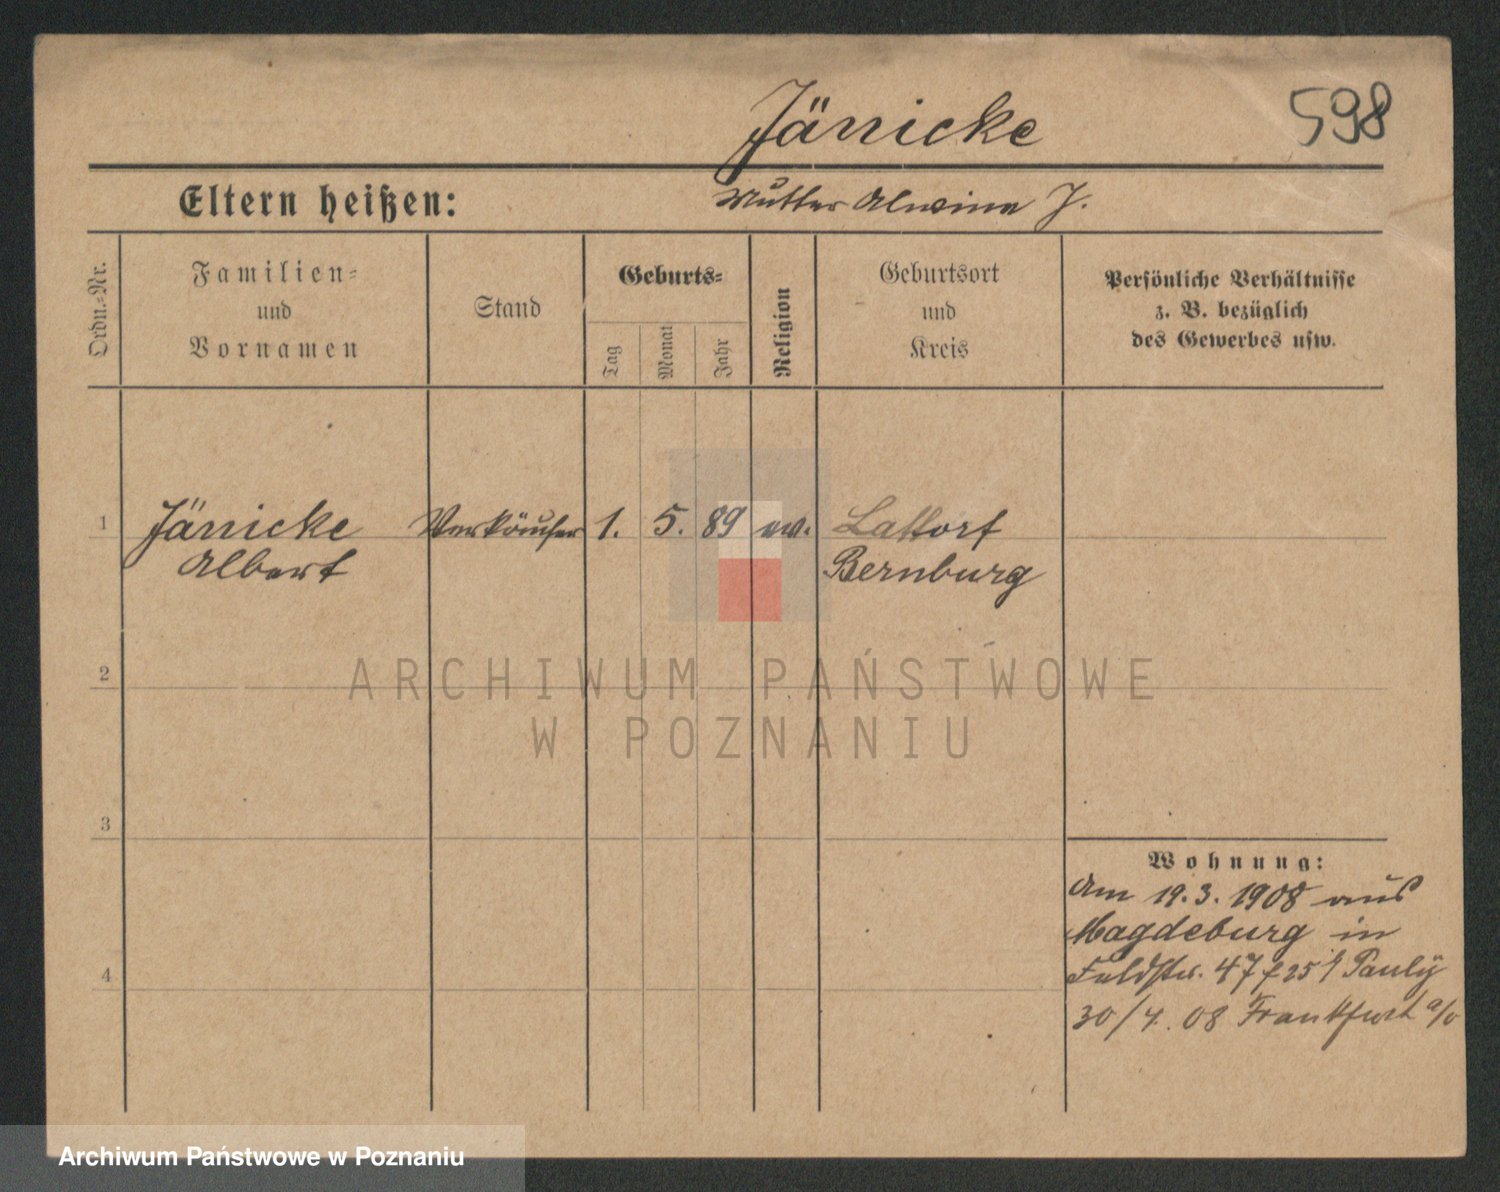 Jänicke
598
Eltern heißen:
Mutter Alwine J.
Ordn.-Nr.
Familien-
und
Vornamen
Stand
Geburts-
Tag
Monat
Jahr
Religion
Geburtsort
und
Kreis
Persönliche Verhältnisse
z. B. bezüglich
des Gewerbes usw.
1
Jänicke
Albert
Verkäufer
1.
5.
89
ev.
Lattorf
Bernburg
2
ARCHIWUM PAŃSTWOWE
W POZNANIU
3
Wohnung:
Am 19.3.1908 aus
Magdeburg in
Feldstr. 47 Pauly
4
30/4. 08 Frankfurt a/o
Archiwum Państwowe w Poznaniu